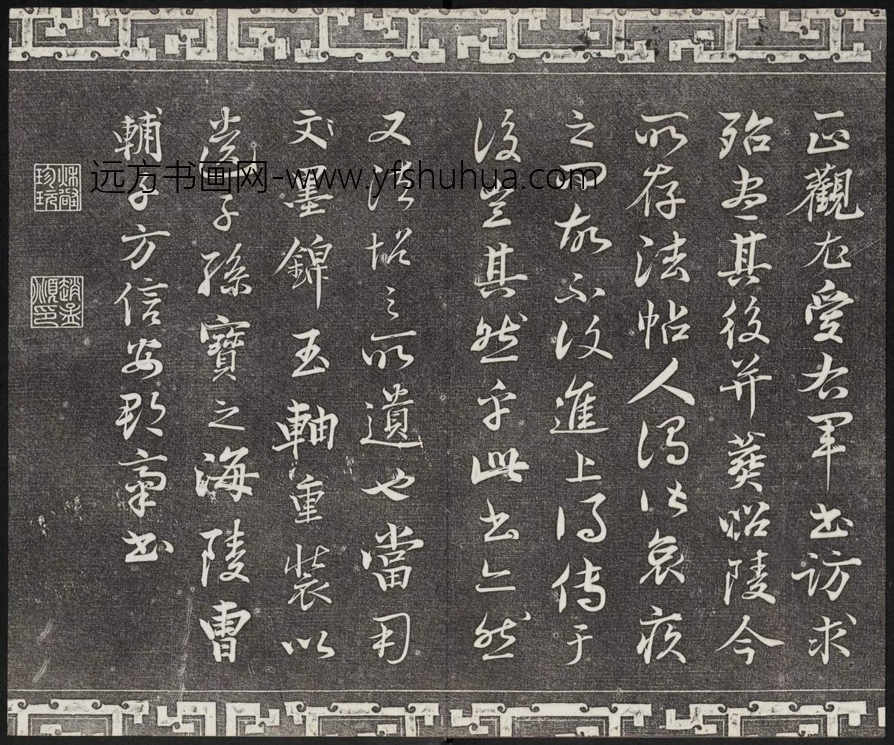 正觀尤愛右軍書訪求
殆盡其後并葬昭陵今
所存法帖人哀疾
之故不復進上得傳于
後豈其然乎此書亦然
又法帖之所遺也當用
墨錦玉軸重裝以
遺子孫寶之海陵曹
輔子方信安郡齋書
秋壑珍玩
趙孟頫印
远方书画网-www.yfshuhua.com